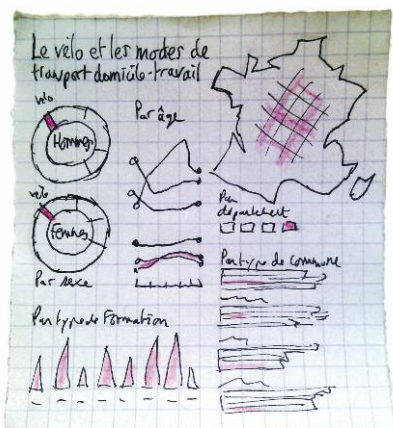 Le vélo et les modes de
transport domicile-travail
vélo
Hommes
Par âge
vélo
Femmes
Par sexe
Par
département
Par type de commune
Par type de Formation